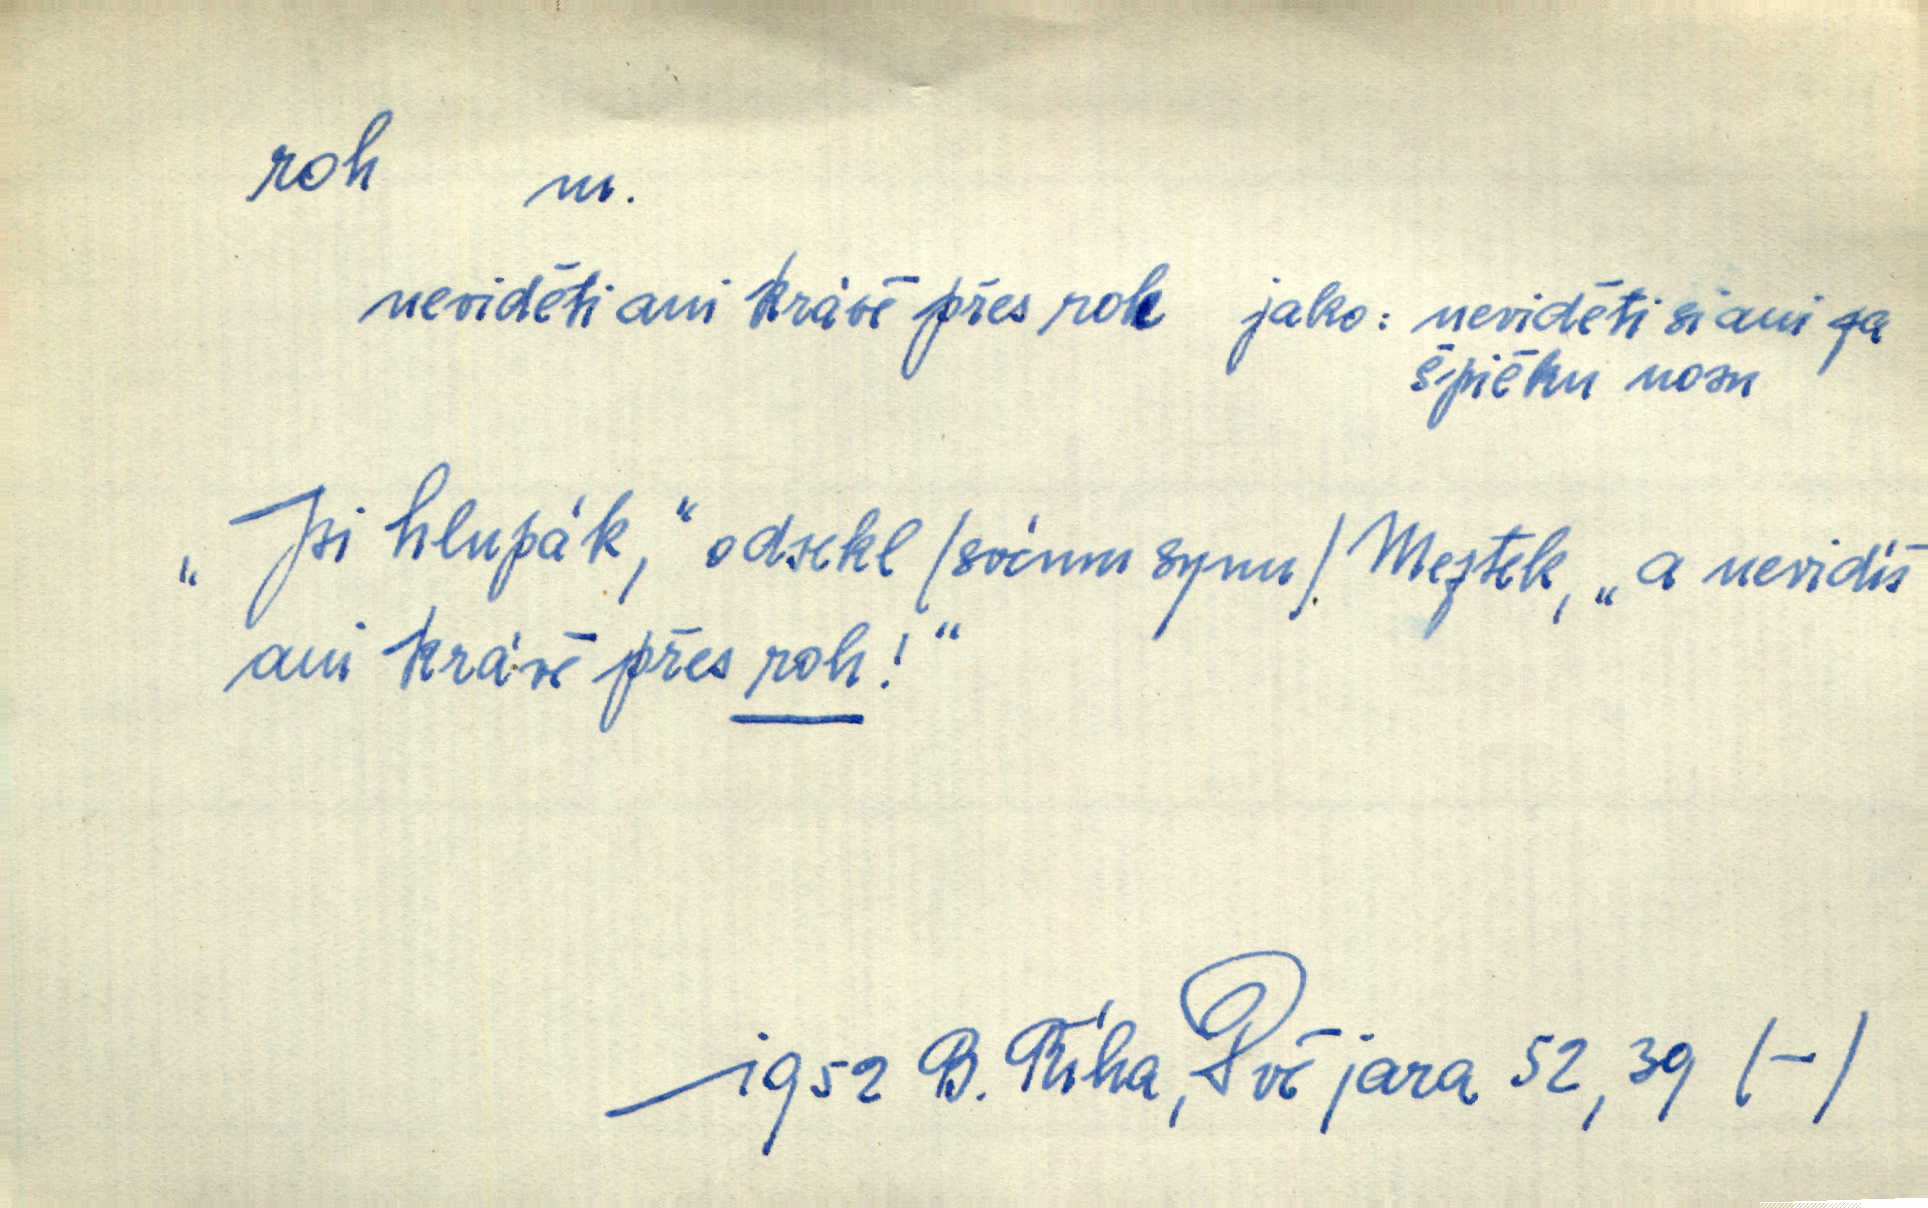 roh m.
neviděti ani krávě přes roh jako: neviděti si ani za
špičku nosu
„Jsi hlupák,“ odsekl /svému synu/ Meztek, „a nevidíš
ani krávě přes roh!“
1952 B. Říha, Dvě jara 52, 39 (–)